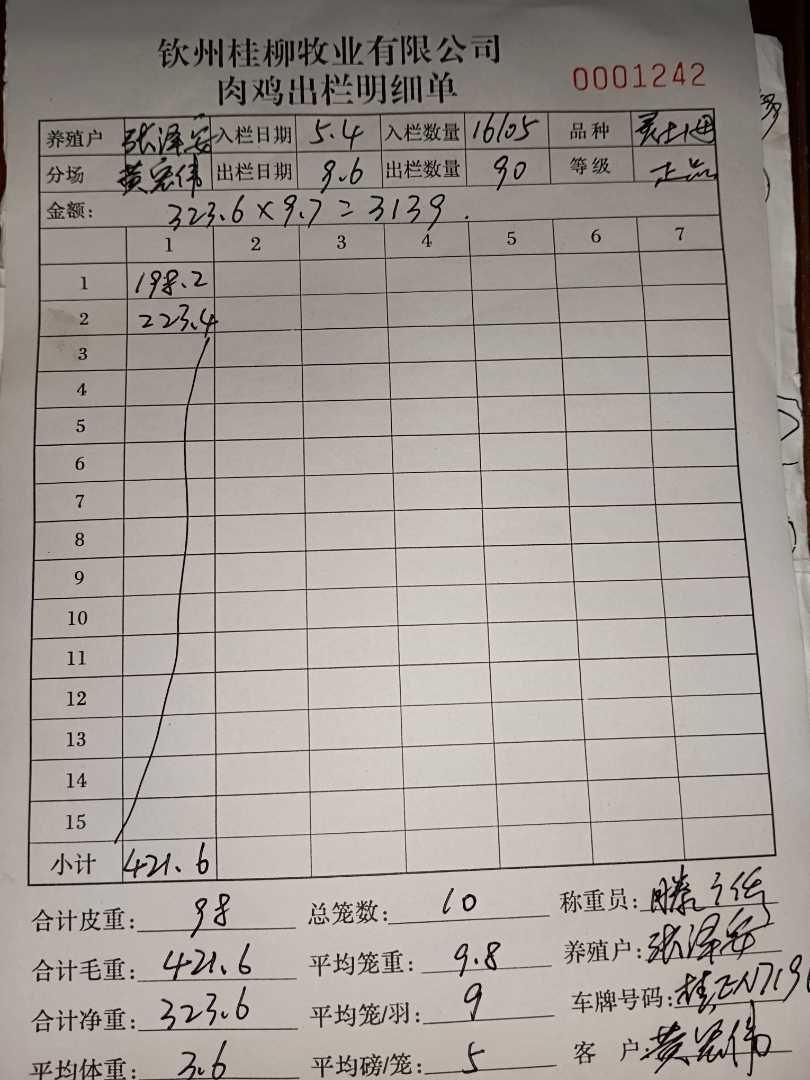 钦州桂柳牧业有限公司
肉鸡出栏明细单 0001242
养殖户 张泽安 入栏日期 5.4 入栏数量 16105 品种
分场 黄宏伟 出栏日期 9.6 出栏数量 90 等级 正品
金额: 323.6×9.7=3139.
1 2 3 4 5 6 7
1 198.2
2 223.4
3
4
5
6
7
8
9
10
11
12
13
14
15
小计 421.6
合计皮重: 98 总笼数: 10 称重员:
合计毛重: 421.6 平均笼重: 9.8 养殖户: 张泽安
合计净重: 323.6 平均笼/羽: 9 车牌号码:
平均体重: 3.6 平均磅/笼: 5 客户: 黄宏伟